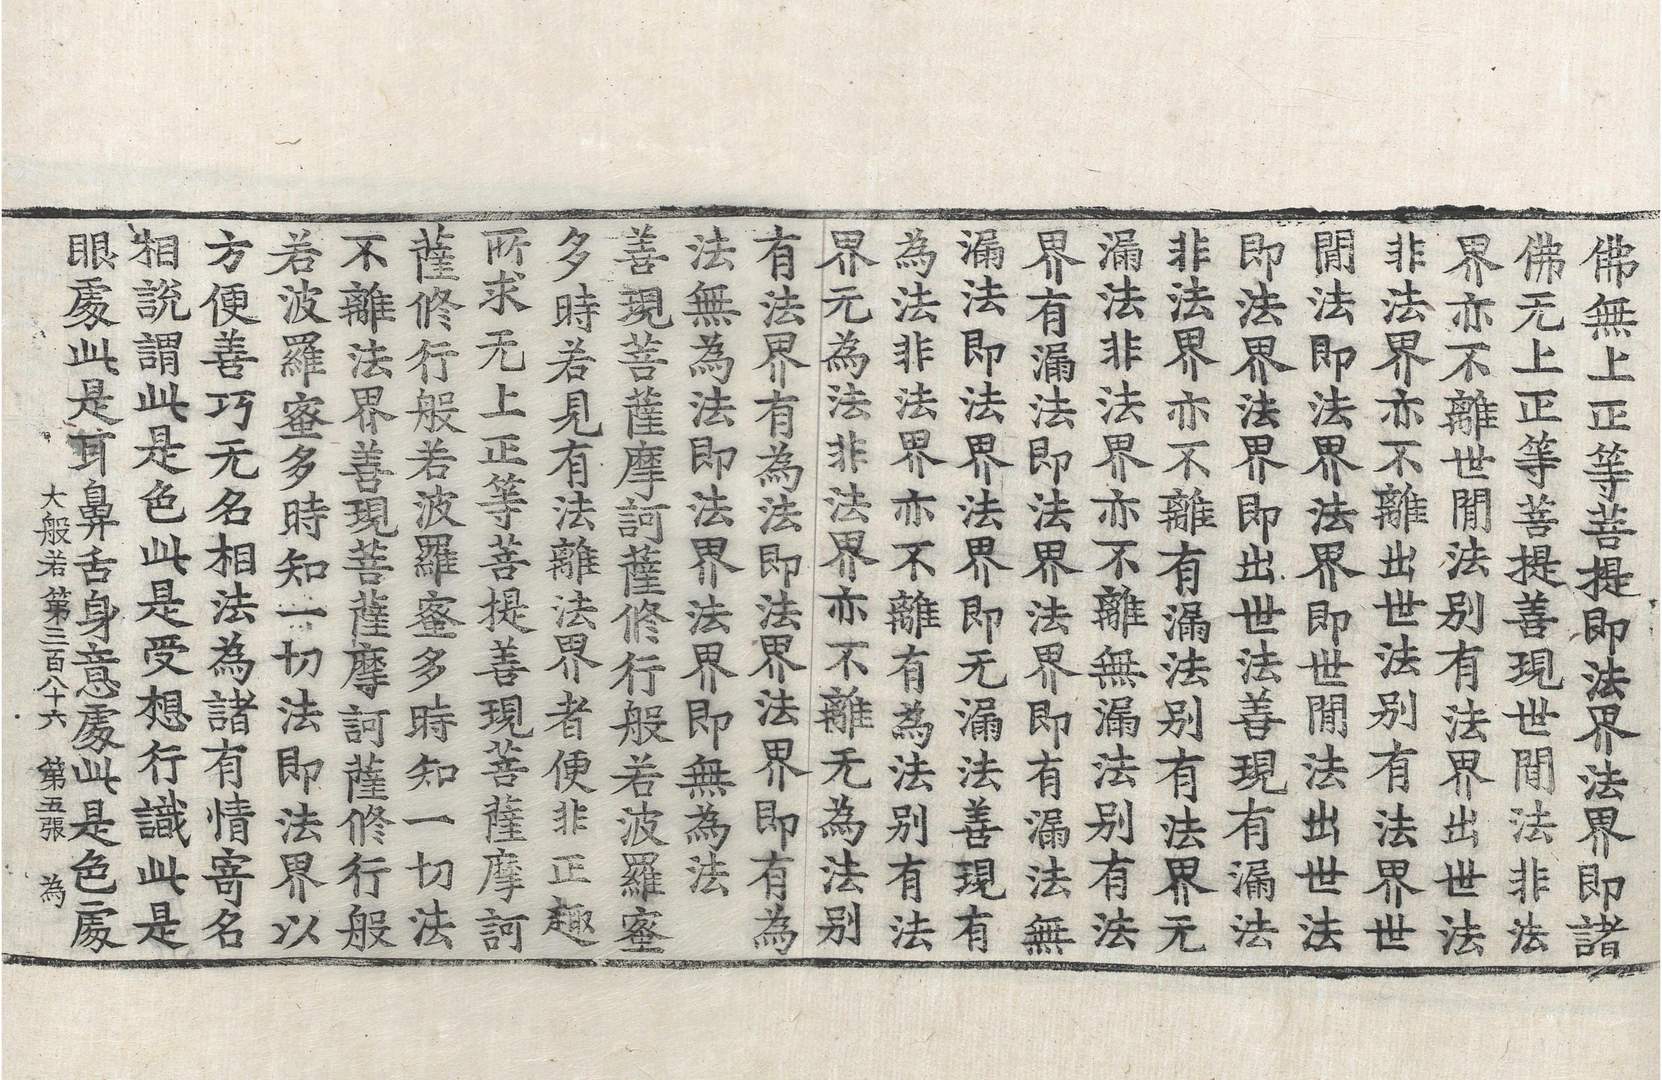 佛無上正等菩提即法界法界即諸
佛无上正等菩提善現世閒法非法
界亦不離世閒法別有法界出世法
非法界亦不離出世法別有法界世
閒法即法界法界即世閒法出世法
即法界法界即出世法善現有漏法
非法界亦不離有漏法別有法界无
漏法非法界亦不離無漏法別有法
界有漏法即法界法界即有漏法無
漏法即法界法界即无漏法善現有
為法非法界亦不離有為法別有法
界无為法非法界亦不離无為法別
有法界有為法即法界法界即有為
法無為法即法界法界即無為法
善現菩薩摩訶薩修行般若波羅蜜
多時若見有法離法界者便非正趣
所求无上正等菩提善現菩薩摩訶
薩修行般若波羅蜜多時知一切法
不離法界善現菩薩摩訶薩修行般
若波羅蜜多時知一切法即法界以
方便善巧无名相法為諸有情寄名
相說謂此是色此是受想行識此是
眼處此是耳鼻舌身意處此是色處
大般若第三百八十六 第五張 為